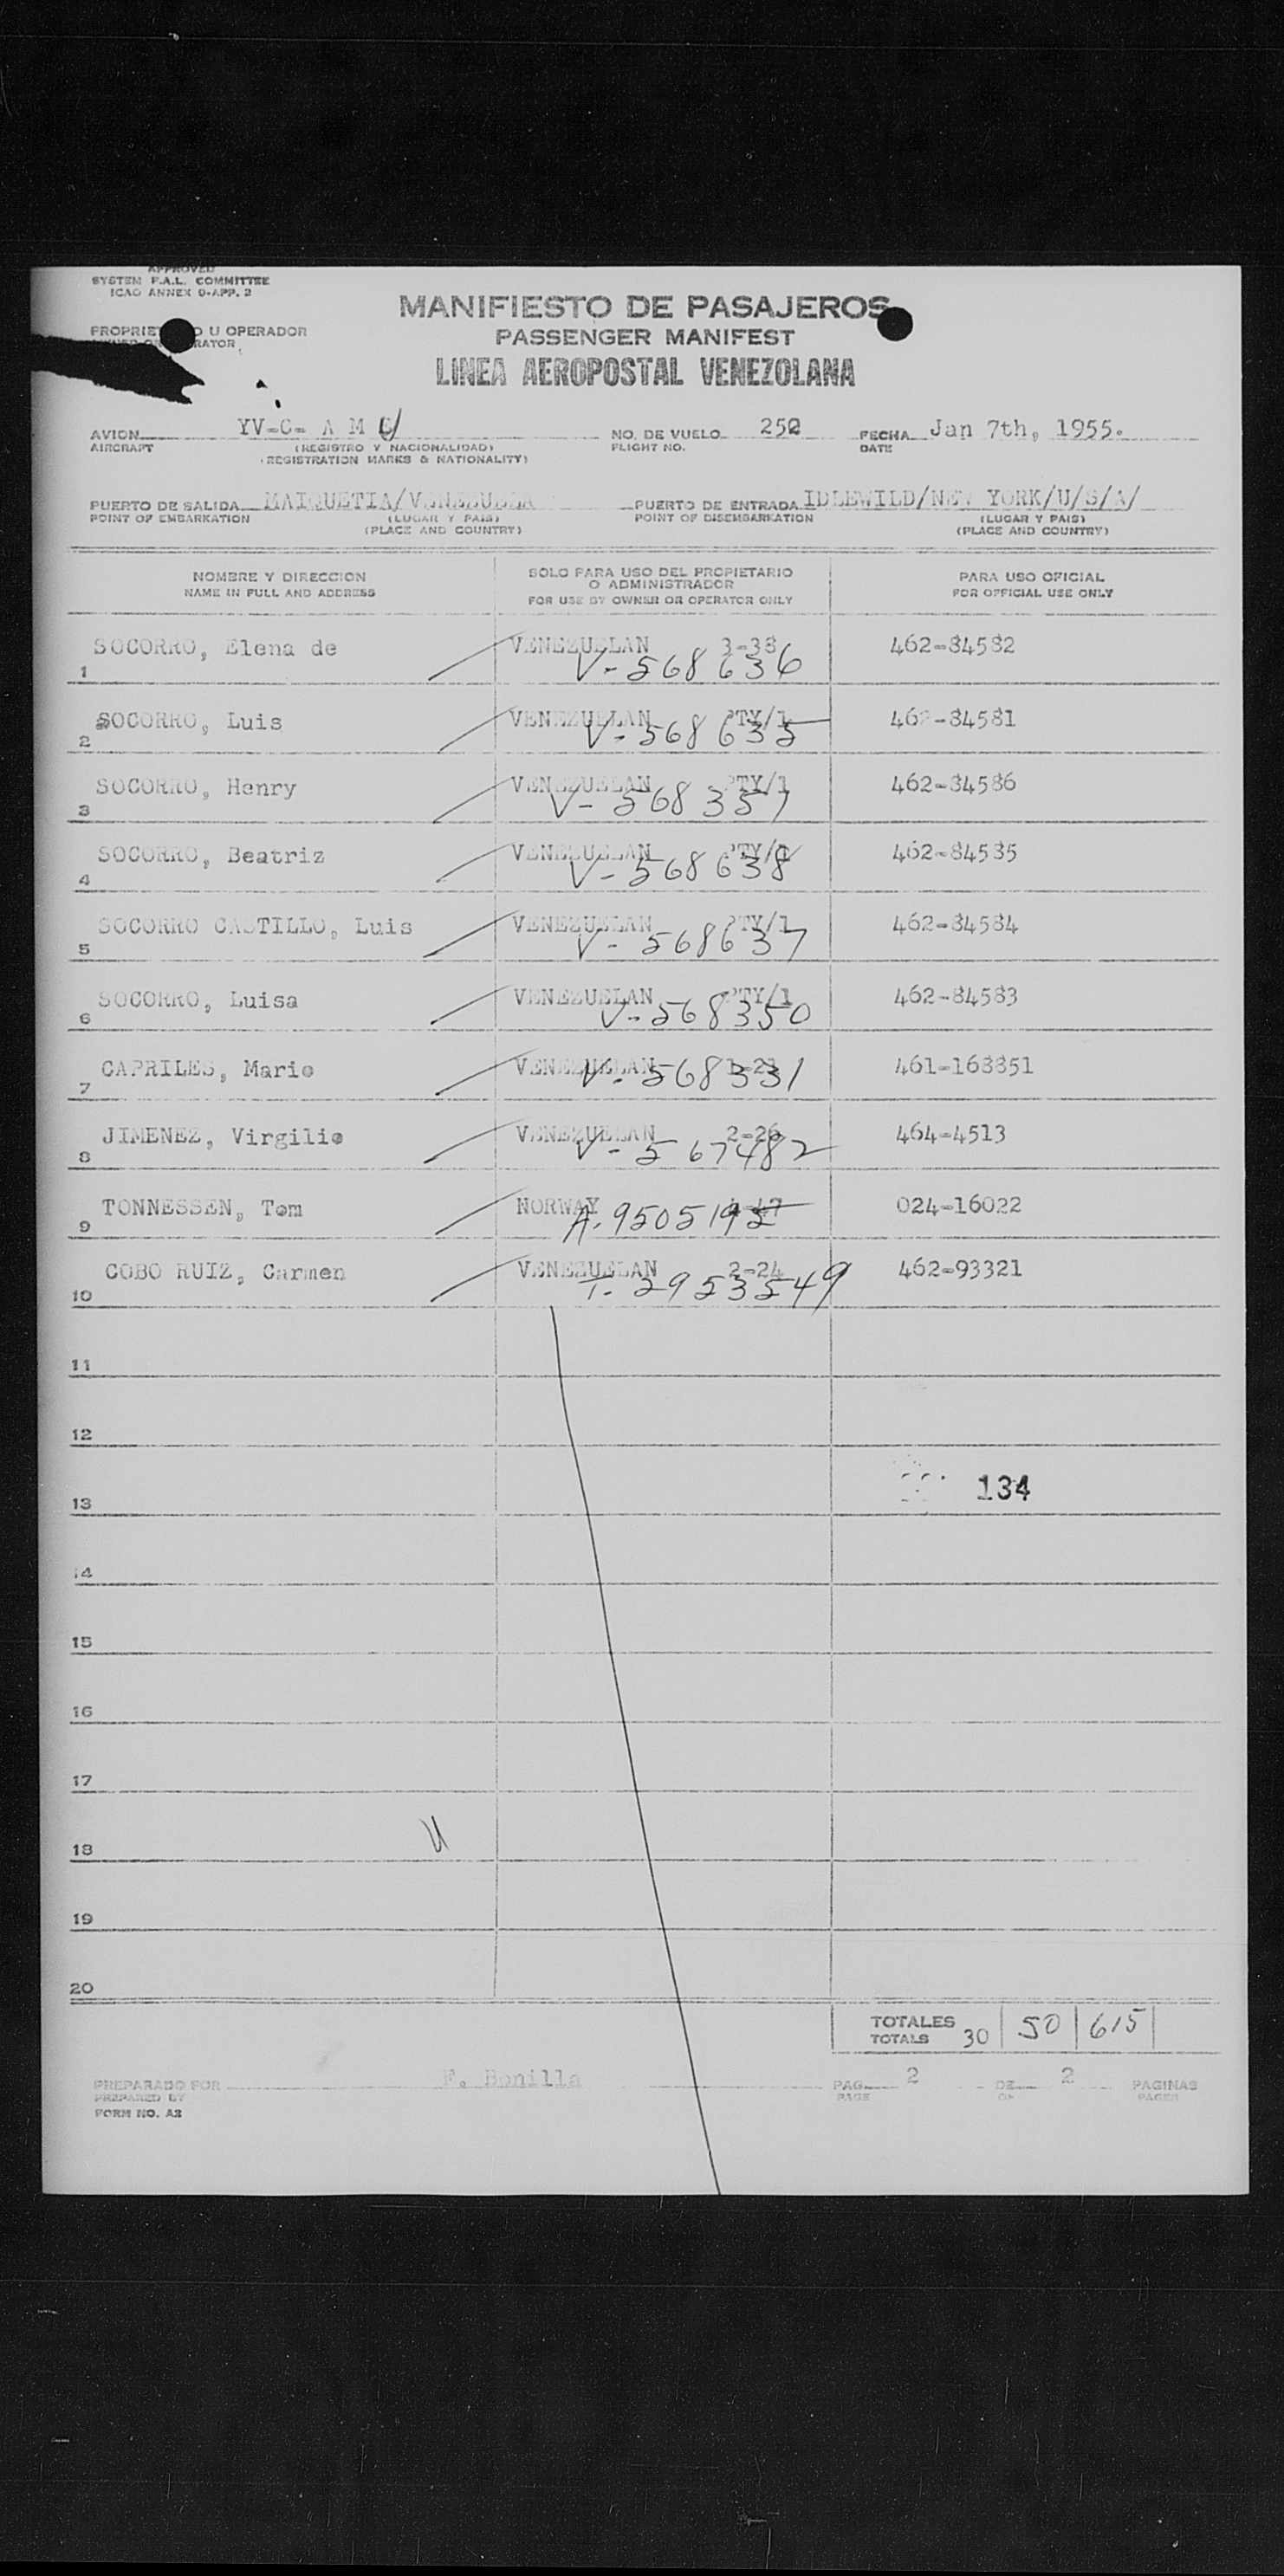 APPROVED
SYSTEM F.A.L. COMMITTEE
ICAO ANNEX 9-APP. 2
MANIFIESTO DE PASAJEROS
PROPRIETARIO U OPERADOR
PASSENGER MANIFEST
LINEA AEROPOSTAL VENEZOLANA
AVION YV-C- A M U NO. DE VUELO 252 FECHA Jan 7th, 1955.
AIRCRAFT (REGISTRO Y NACIONALIDAD) FLIGHT NO. DATE
(REGISTRATION MARKS & NATIONALITY)
PUERTO DE SALIDA MAIQUETIA/VENEZUELA PUERTO DE ENTRADA IDLEWILD/NEW YORK/U/S/A/
POINT OF EMBARKATION (LUGAR Y PAIS) POINT OF DISEMBARKATION (LUGAR Y PAIS)
(PLACE AND COUNTRY) (PLACE AND COUNTRY)
NOMBRE Y DIRECCION SOLO PARA USO DEL PROPIETARIO PARA USO OFICIAL
NAME IN FULL AND ADDRESS O ADMINISTRADOR FOR OFFICIAL USE ONLY
FOR USE BY OWNER OR OPERATOR ONLY
SOCORRO, Elena de VENEZUELAN 3-38 462-84582
1 V-568636
SOCORRO, Luis VENEZUELAN PTY/1 462-84581
2 V-568635
SOCORRO, Henry VENEZUELAN PTY/1 462-84586
3 V-568351
SOCORRO, Beatriz VENEZUELAN PTY/1 462-84585
4 V-568638
SOCORRO CASTILLO, Luis VENEZUELAN PTY/1 462-84584
5 V-568637
SOCORRO, Luisa VENEZUELAN PTY/1 462-84583
6 V-568350
CAPRILES, Mario VENEZUELAN 461-163351
7 V-568331
JIMENEZ, Virgilio VENEZUELAN 2-26 464-4513
8 V-567482
TONNESSEN, Tom NORWAY 024-16022
9 A.9505195
COBO RUIZ, Carmen VENEZUELAN 2-24 462-93321
10 T.2953549
11
12
13 134
14
15
16
17
18
19
20
TOTALES
TOTALS 30 50 615
PREPARADO POR F. Bonilla PAG. 2 DE 2 PAGINAS
PREPARED BY PAGE OF PAGES
FORM NO. A2